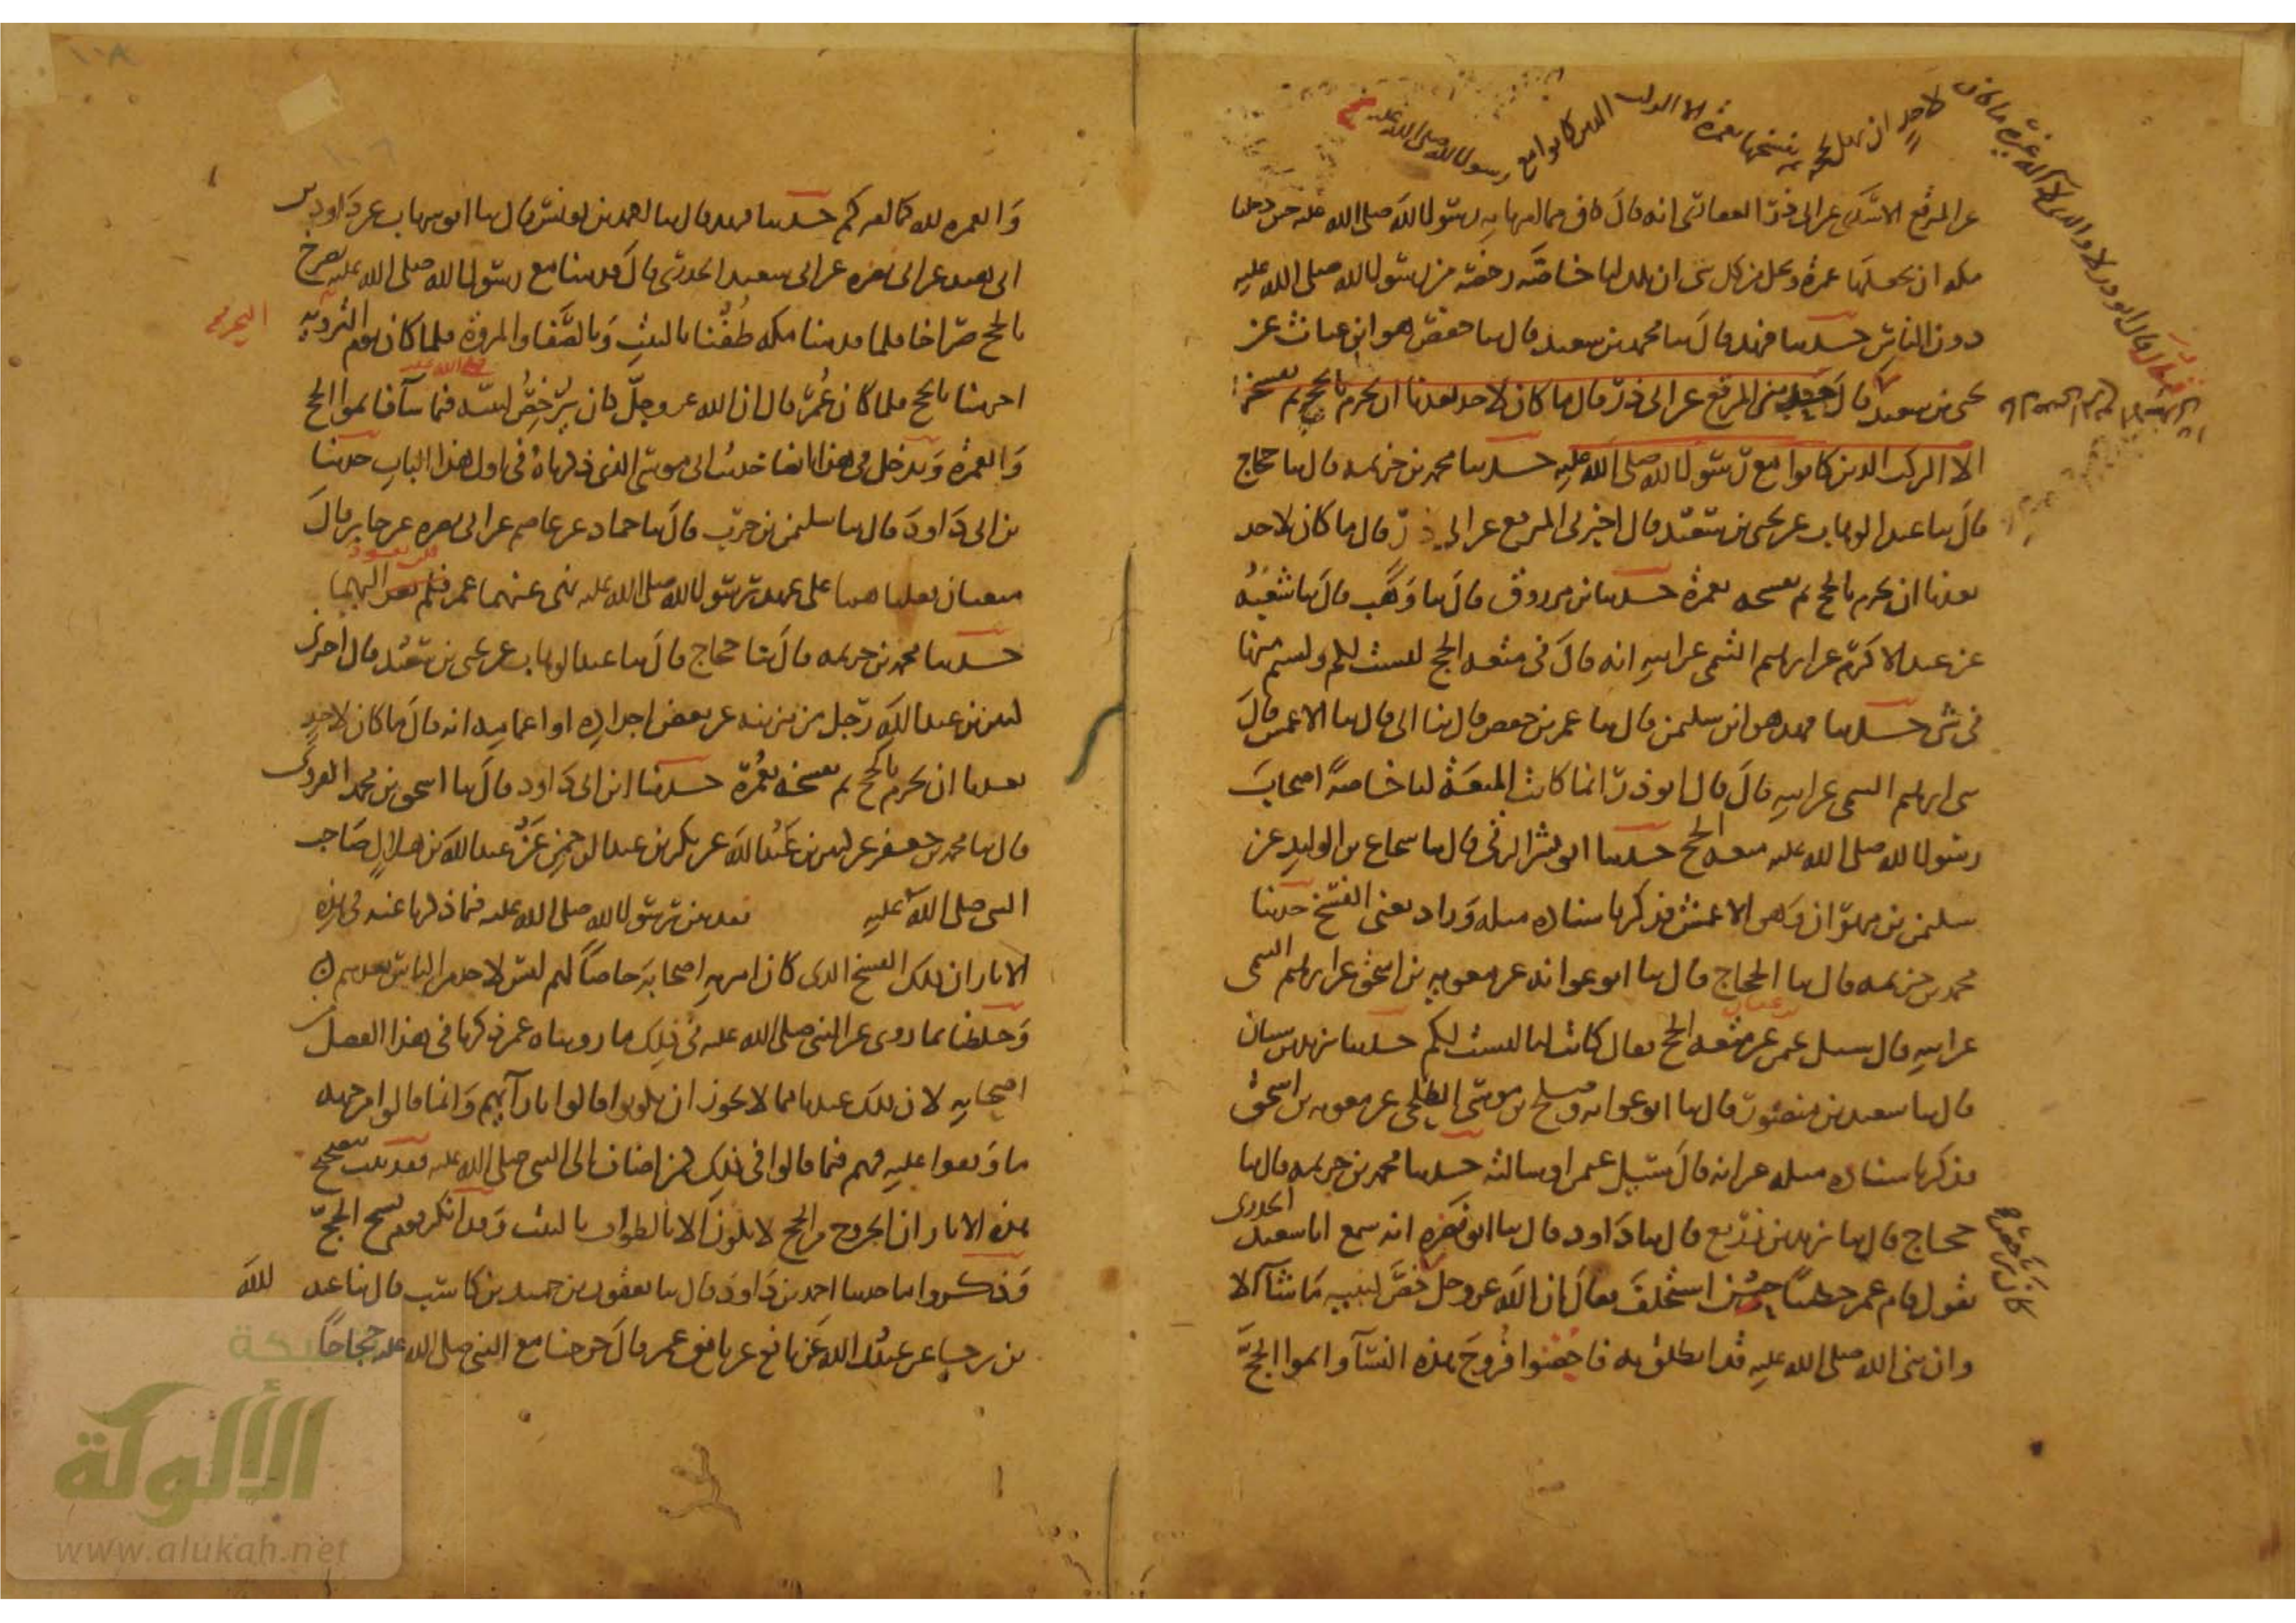 عن المرقع الاسدى عن ابى ذر الغفارى انه قال كان فيما امرنا به رسول الله صلى الله عليه حين دخلنا
مكه ان نجعلها عمرة ونحل من كل شى ان تلك لنا خاصّه رخصة من رسول الله صلى الله عليه
دون الناس حدثنا فهد قال ثنا محمد بن سعيد قال ثنا حفص هو ابن غياث عن
يحيى بن سعيد قال حدثنى المرقع عن ابى ذر قال ما كان لاحد بعدنا ان يحرم بالحج ثم يفسخه
الا الركب الذين كانوا مع رسول الله صلى الله عليه حدثنا محمد بن خزيمه قال ثنا حجاج
قال ثنا عبد الوهاب عن يحيى بن سعيد قال اخبرنى المرقع عن ابى ذر قال ما كان لاحد
بعدنا ان يحرم بالحج ثم يفسخه بعمرة حدثنا ابن مرزوق قال ثنا وهب قال ثنا شعبه
عن عبد الاكرم عن ابرهيم التيمى عن ابيه انه قال فى متعه الحج ليست لكم ولستم منها
فى شى حدثنا فهد هو ابن سليمن قال ثنا عمر بن حفص قال ثنا ابى قال ثنا الاعمش قال
ثنى ابرهيم التيمى عن ابيه قال قال ابو ذر انما كانت المتعة لنا خاصة اصحاب
رسول الله صلى الله عليه متعه الحج حدثنا ابو بشر الرقى قال ثنا شجاع بن الوليد عن
سليمن بن مهران وهو الاعمش فذكر باسناده مثله وزاد يعنى الفسخ حدثنا
محمد بن خزيمه قال ثنا الحجاج قال ثنا ابو عوانه عن معويه بن اسحق عن ابرهيم التيمى
عن ابيه قال سئل عن متعه الحج فقال كانت لنا ليست لكم حدثنا يزيد بن سنان
قال ثنا سعيد بن منصور قال ثنا ابو عوانه وصلح بن موسى الطلحى عن معويه بن اسحق
فذكر باسناده مثله غير انه قال سئل عمر او سالته حدثنا محمد بن خزيمه قال ثنا
حجاج قال ثنا يزيد بن زريع قال ثنا داود قال ثنا ابو نضره انه سمع ابا سعيد الخدرى
يقول قام عمر خطيبًا حين استخلف فقال ان الله عز وجل خصّ لنبيه ما شا الا
وان نبى الله صلى الله عليه قد انطلق به فاحصنوا فروج هذه النسآ واتموا الحجّ
والعمره لله كما امركم حدثنا فهد قال ثنا احمد بن يونس قال ثنا ابو شهاب عن داود بن
ابى هند عن ابى نضره عن ابى سعيد الخدرى قال قدمنا مع رسول الله صلى الله عليه نصرخ
بالحج صراخا فلما قدمنا مكه طفنا بالبيت وبالصّفا والمروة فلما كان يوم الترويه
احرمنا بالحج فلما كان عُمرُ قال ان الله عز وجلّ كان يرخص لنبيه فيما شآ فاتموا الحج
والعمرة ويدخل فى هذا ايضا حديث ابى موسى الذى ذكرناه فى اول هذا الباب حدثنا
بن ابى داود قال ثنا سليمن بن حرب قال ثنا حماد عن عاصم عن ابى نضره عن جابر قال
متعتان فعلناهما على عهد رسول الله صلى الله عليه نهى عنهما عمر فلم نعد اليهما
حدثنا محمد بن خزيمه قال ثنا حجاج قال ثنا عبد الوهاب عن يحيى بن سعيد قال اخبرنى
كثير بن عبد الله رجل من مزينه عن بعض اجداده او اعمامه انه قال ما كان لاحد
بعدنا ان يحرم بالحج ثم يفسخه بعمرة حدثنا ابن ابى داود قال ثنا اسحق بن محمد الفروى
قال ثنا محمد بن جعفر عن كثير بن عبد الله عن بكر بن عبد الرحمن عن عبد الله بن هلال صاحب
النبى صلى الله عليه بعد بين رسول الله صلى الله عليه فيما ذكرنا عنه فى هذه
الاثار ان ذلك الفسخ الذى كان امر به اصحابه خاصا لهم ليس لاحد من الناس بعدهم
وخلطنا بما روى عن النبى صلى الله عليه فى ذلك ما رويناه عمن ذكرنا فى هذا الفصل من
اصحابه لان ذلك عندنا مما لا يجوز ان يكونوا قالوا بارآئهم وانما قالوا من جهه
ما وقفوا عليه فهم فيما قالوا فى ذلك كمن اضاف الى النبى صلى الله عليه فقد ثبت بتصحيح
هذه الاثار ان الخروج من الحج لا يكون الا بالطواف بالبيت وقد انكر قوم فسخ الحجّ
وذكروا ما حدثنا احمد بن داود قال ثنا يعقوب بن حميد بن كاسب قال ثنا عبد الله
بن رجا عن عبيد الله عن نافع عن ابن عمر قال خرجنا مع النبى صلى الله عليه حجاجا
www.alukah.net
شبكة
الألوكة